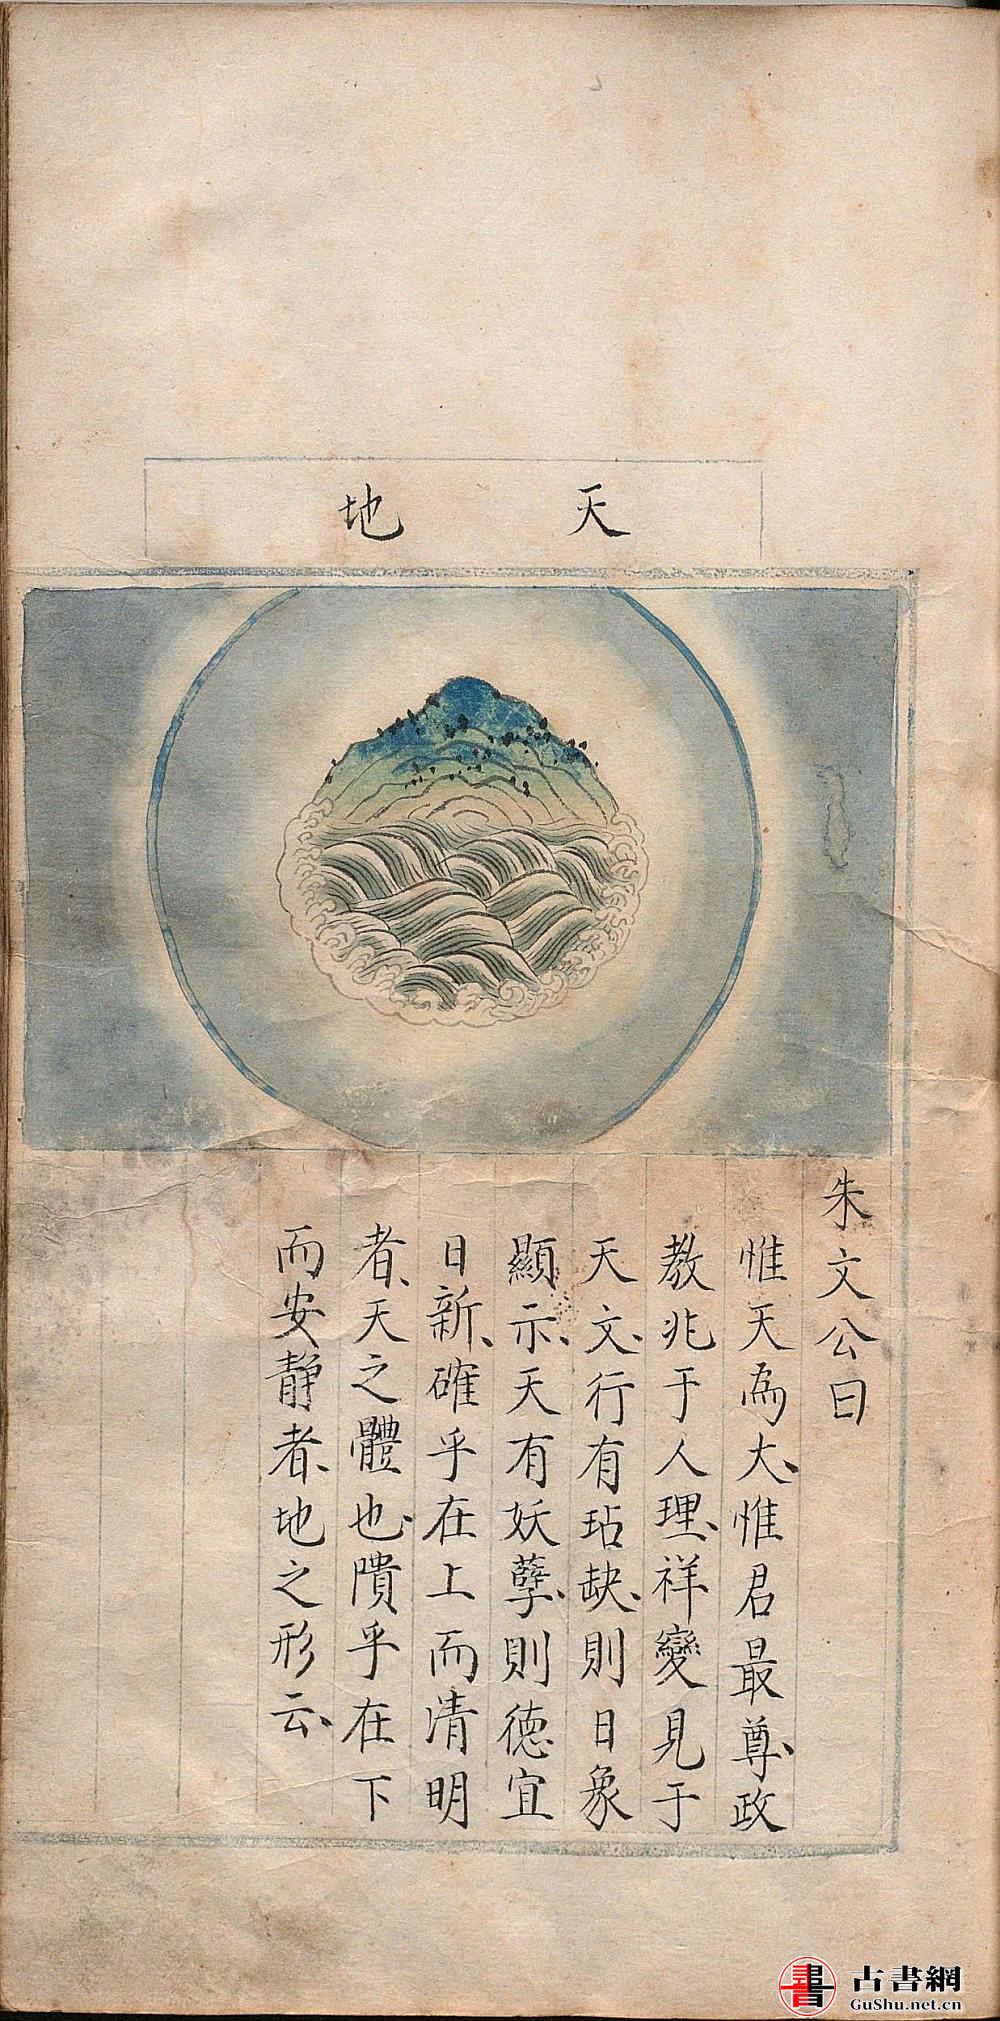 天地
朱文公曰
惟天為大、惟君最尊、政
教兆于人理、祥變見于
天文、行有玷缺、則日象
顯示、天有妖孽、則德宜
日新、確乎在上而清明
者、天之體也、隤乎在下
而安靜者、地之形云、
古書網
GuShu.net.cn